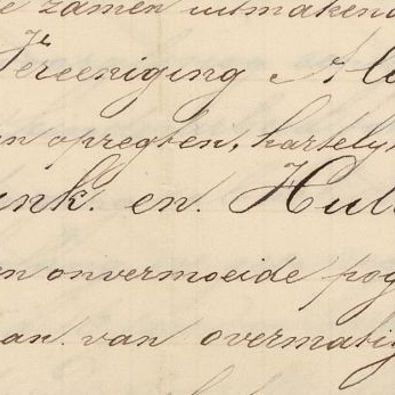 e zamen uitmakend
Vereeniging
en opregten, hartelyk
ank. en. Hul
en onvermoeide pog
an. van overmatig